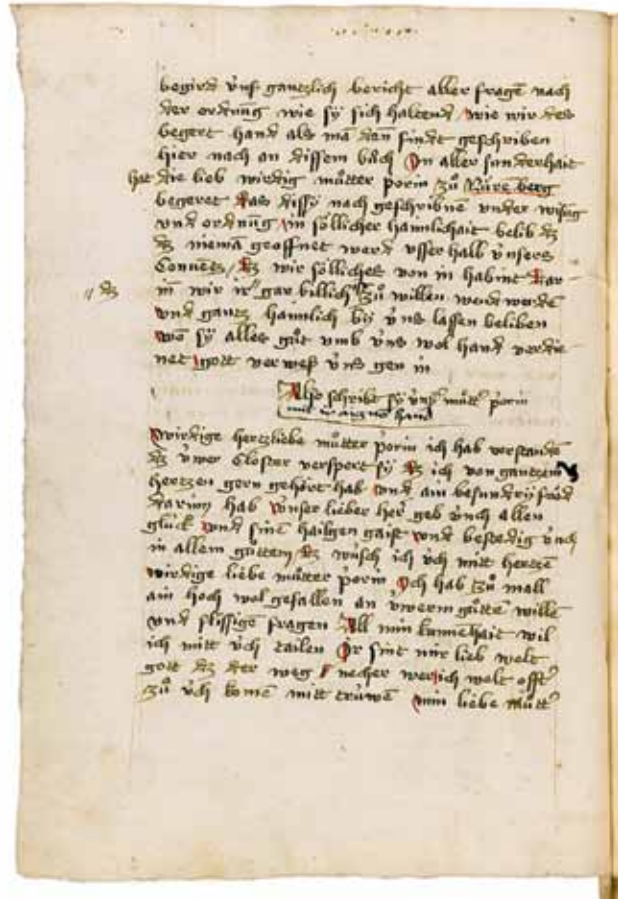 begird v̈nß gantzlich bericht aller fragē nach
der ordnūg wie sÿ sich haltend wie wir des
begert hand als mā den̄ findt geschriben
hier nach an dissem bůch In aller sunderhait
hat die lieb wirdig můtter ṗorin zů Nürēberg
begeret das dissÿ nach geschribnē vnder wisūg
vnd ordnūg in söllicher haimlichait belib dz
dz niemā geoffnet werd vsser halb v̈nsers
Conuētz / dz wir söllichs von in habint Dar
〃 dz
in̄ wir ir gar billich zů willen wend werdē
vnd gantz haimlich bÿ v̈ns lassen beliben
wō sÿ alles gůt vmb v̈ns wol hand verdie
net gott verweß v̈ns gen in
Also schribt sÿ v̈nß můtt ṗorin
mit ir aigne hand
Wirdige hertzliebe můtter ṗorin ich hab verstandē
dz v̈wer Closter verspert sÿ dz ich von gantzem
hertzen gern gehört hab vnd ain besundrÿ fröd
darum̄ hab v̈nser lieber her geb v̈ch allen
glück vnd sinē hailgen gaist vnd bestedig v̈ch
in allem gůttem dz wüsch ich v̈ch mitt hertzē
wirdige liebe můtter ṗorin Ich hab zů mall
ain hoch wol gefallen an v̈werm gůttē willē
vnd flissige fragen All min kunnēhait wil
ich mitt v̈ch tailen Ir sint mir lieb welt
gott dz der weg necher wer ich welt offt
zů v̈ch komē mitt trüwē min liebe můtt